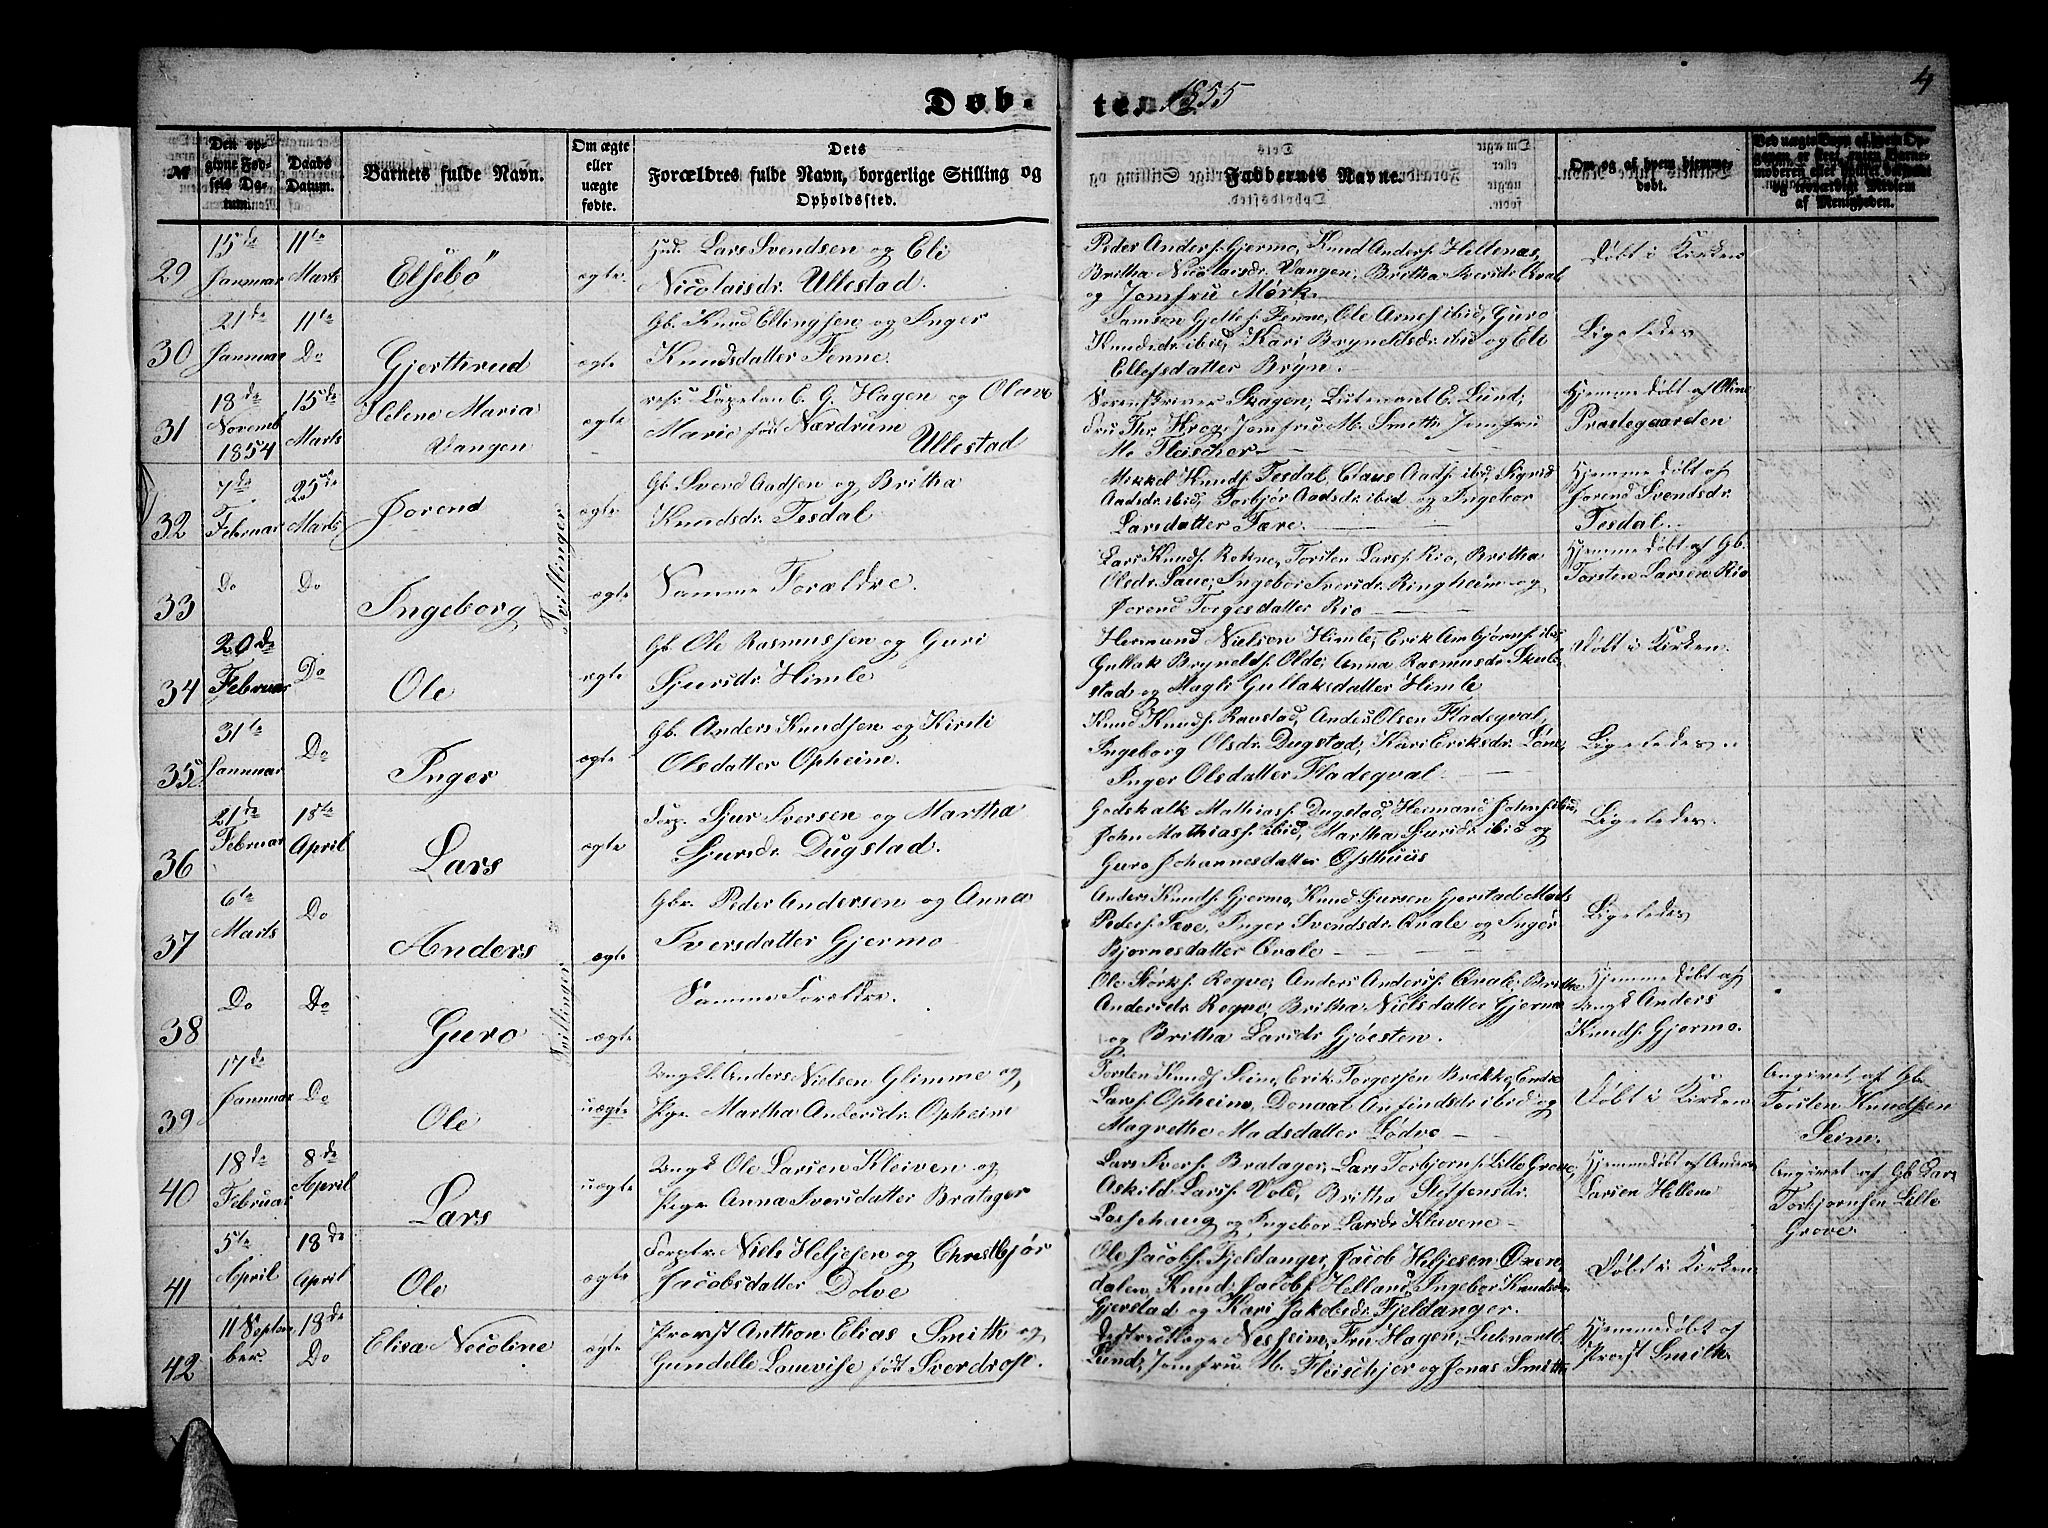 Døb-
te. 1855
4
№
Den op-
givne Fød-
sels Da-
tum.
Daabs
Datum.
Barnets fulde Navn.
Om ægte
eller
uægte
fødte.
Dets
Forældres fulde Navn, borgerlige Stilling og
Opholdssted.
Faddernes Navne.
Om og af hvem hjemme-
døbt.
29
15de
Januar
11te
Marts
Elsebö
ægte
Lars Svendsen og Eli
Nicolaisdr. Ullestad.
Peder Anders. Gjermo, Knud Anders. Hellenæs,
Britha Nicolaisdr. Vangen, Britha Iversdr. Qvale
og Jomfru Mørk.
Døbt i Kirken
30
21de
Januar
11te
Do
Gjerthrud
ægte
Gb. Knud Ellingsen og Inger
Knudsdatter Fenne.
Samson Gjelles. Fenne, Ole Arnes. ibid, Guro
Knudsdr. ibid, Kari Bryneldsdr. ibid og Eli
Ellefsdatter Bryn.
Ligeledes
31
18de
Novemb
1854
15de
Marts
Helene Maria
Vangen
ægte
Capelan E. G. Hagen og Olave
Marie født Nærdrum
Ullestad
Sorenskriver Skagen, Lieutenant E. Lund,
Fru Thr. Krog, Jomfru M. Smith, Jomfru
M. Fleischer
Hjemmedøbt af Oline
Prædegaarden
32
7de
Februar
25de
Marts
Jorend
Tvillinger
ægte
Gb. Svend Aadsen og Britha
Knudsdr. Tesdal
Mikkel Knuds. Tesdal, Claus Aads. ibid, Sigrid
Aadsdr. ibid, Torbjør Aadsdr. ibid og Ingebor
Larsdatter Fære.
Hjemmedøbt af
Jorend Svendsdr.
Tesdal.
33
Do
Do
Ingeborg
ægte
Samme Forældre.
Lars Knuds. Rokne, Torsten Lars. Rio, Britha
Olsdr. Saue, Ingebor Iversdr. Ringheim og
Jorend Torgesdatter Rio
Hjemmedøbt af Gb.
Torsten Larsen Rio
34
20de
Februar
Do
Ole
ægte
Gb. Ole Rasmussen og Guri
Sjursdr. Himle
Hermund Nielsen Himle, Erik Ambjørns. ibid,
Gullak Brynelds. Olde, Anna Rasmusdr. Skule-
stad og Magli Gullaksdatter Himle
Døbt i Kirken
35
31te
Januar
Do
Inger
ægte
Gb. Anders Knudsen og Kirsti
Olsdatter Opheim.
Knud Knuds. Raustad, Anders Olsen Fladeqval,
Ingeborg Olsdr. Dugstad, Kari Eriksdr. Løne,
Inger Olsdatter Fladeqval
Ligeledes
36
21de
Februar
1ste
April
Lars
ægte
Sjur Iversen og Martha
Sjursdr. Dugstad.
Godskalk Mathias. Dugstad, Hermand Johns. ibid,
John Mathias. ibid, Martha Sjursdr. ibid og
Guro Johannesdatter Østhuus
Ligeledes
37
6te
Marts
Do
Anders
Tvillinger
ægte
Gbr. Peder Andersen og Anna
Iversdatter Gjermo
Anders Knuds. Gjermo, Knud Sjursen Gjerstad, Mads
Peders. Fære, Inger Svendsdr. Qvale og Inger
Bjørnesdatter Qvale
Ligeledes
38
Do
Do
Guro
ægte
Samme Forældre.
Ole Størks. Rogne, Anders Anders. Qvale, Britha
Andersdr. Rogne, Britha Nielsdatter Gjermo
og Britha Larsdr. Gjøesten.
Hjemmedøbt af
Ungk. Anders
Knuds. Gjermo.
39
17de
Januar
Do
Ole
uægte
Ungk. Anders Nielsen Glimme og
Pige Martha Andersdr. Opheim
Torsten Knuds. Seim, Erik Torgersen Brække, Endre
Lars. Opheim, Donaat Anfindsdr. ibid og
Magrethe Madsdatter Lødve
Døbt i Kirken
Angivet af Gb.
Torsten Knudsen
Seim.
40
18de
Februar
8de
April
Lars
uægte
Ungk. Ole Larsen Kleiven og
Pige Anna Iversdatter Bratager
Lars Ivers. Bratager, Lars Torbjørns. Lille Grove,
Askild Lars. Vold, Britha Steffensdr.
Lassehaug og Ingebor Larsdr. Klevene
Hjemmedøbt af Anders
Larsen Hellene
Angivet af Gb. Lars
Torbjørnsen Lille
Grove.
41
5te
April
18de
April
Ole
ægte
Niels Heljesen og Christbjør
Jacobsdatter Dolve
Ole Jacobs. Fjeldanger, Jacob Heljesen Øxen-
dalen, Knud Jacobs. Helland, Ingebor Knudsdr.
Gjerstad og Kari Jakobsdr. Fjeldanger.
Døbt i Kirken
42
11 Septem
ber.
18de
Do
Elisa Nicoline
ægte
Provst Anthon Elias Smith og
Gundelle Louvise født Sverdrop.
Nesheim, Fru Hagen, Lutnant E.
Lund, Jomfru M. Fleischjer og Jonas Smith
Hjemmedøbt af
Provst Smith.